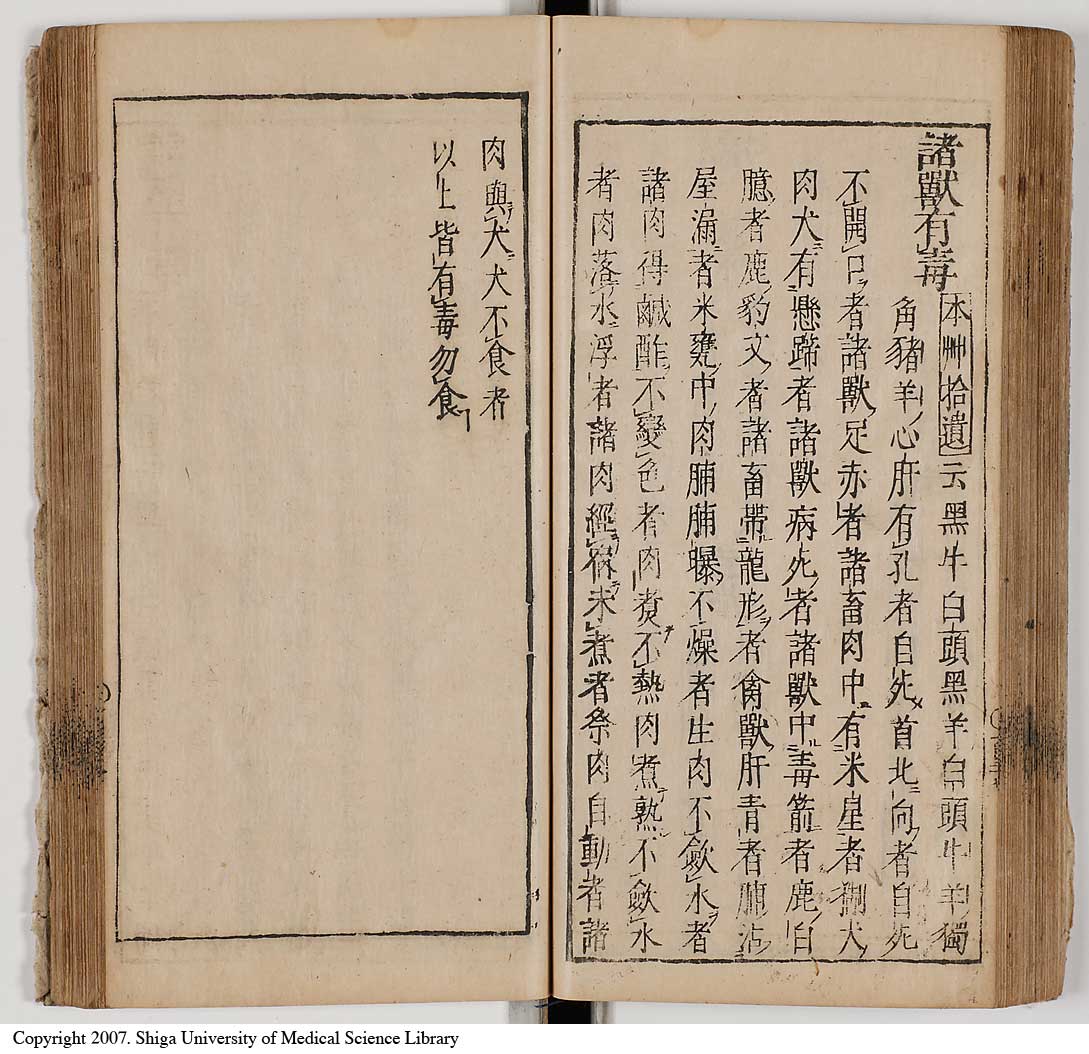 諸獸有毒
本艸拾遺云黑牛白頭黑羊白頭牛羊獨
角豬羊心肝有孔者自死首北向者自死
不開口者諸獸足赤者諸畜肉中有米星者猘犬
肉犬有懸蹄者諸獸病死者諸獸中毒箭者鹿白
臆者鹿豹文者諸畜帶龍形者禽獸肝青者脯沾
屋漏者米甕中肉脯脯曝不燥者生肉不歛水者
諸肉得鹹酢不變色者肉煑不熱肉煮熟不歛水
者肉落水浮者諸肉經宿未煮者祭肉自動者諸
肉與犬犬不食者
以上皆有毒勿食
Copyright 2007. Shiga University of Medical Science Library